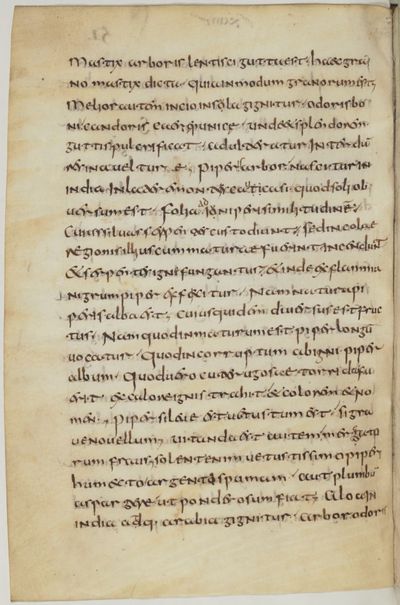 Mastix arboris lentisci gutta est. haec gra
no mastix dicta quia in modum granorum est
Melior autem in cio insola gignitur odoris bo
ni candoris cerae punicae unde et splendorem
guttis pulcrificat adulteratur interdum
resina vel ture. Piper arbor nascitur in
india in latere montis caucasi quod soli ob
versum est. Folia iuniperi similitudine
Cuius silvas serpentes custodiunt, sed incolae
regionis illius cum maturae fuerint incendunt
et serpentes igni fugantur, et inde ex flamma
nigrum piper efficitur. Nam natura pi
peris alba est, cuius quidem diversus est fruc
tus. Nam quod inmaturum est piper longum
vocatur. Quod incorruptum ab igni piper
album. Quod vero cute rugosa et torrida fu
erit ex calore ignis trahit et colorem et no
men, Piper si leve est vetustum est. si gra
ve novellum, vitanda est autem mercato
rum fraus, solent enim vetustissimo piperi
humecto argenti spumam aut plumbum
aspargere ut ponderosum fiat, Aloa in
india atque arabia gignitur arbor odoris